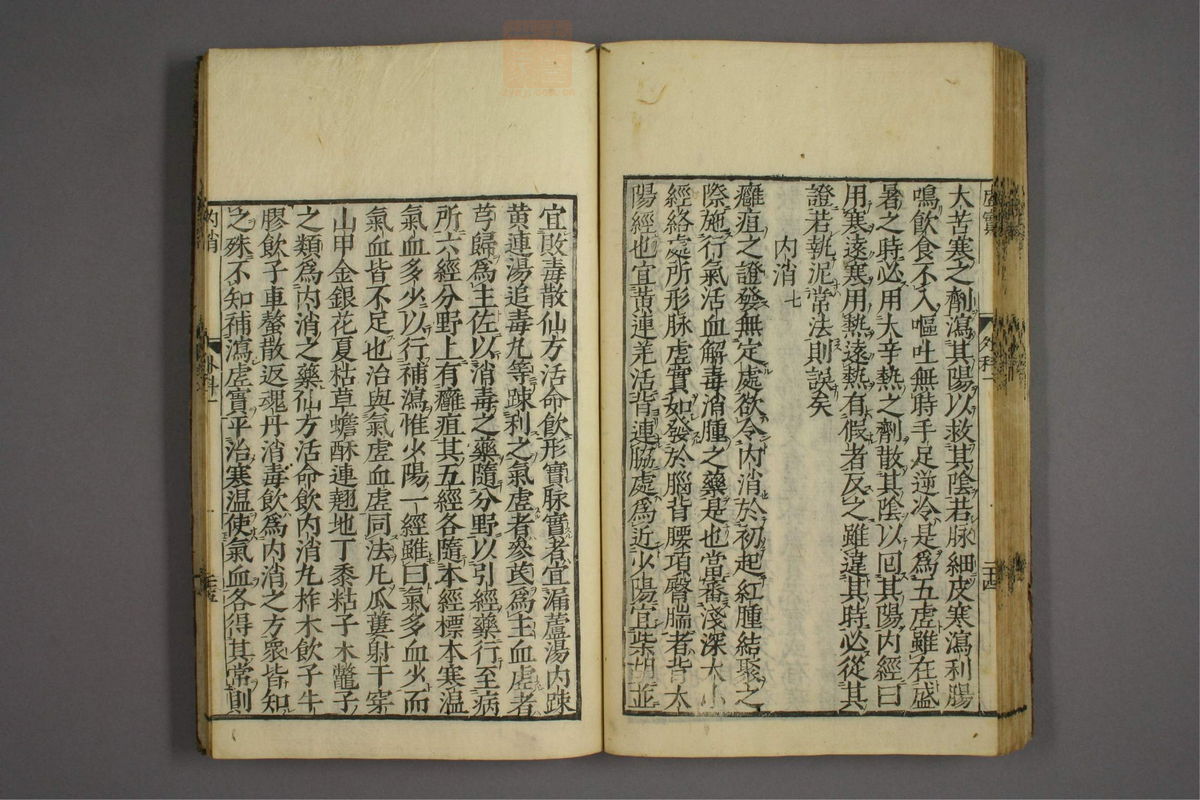 大苦寒之劑瀉其陽以救其陰若脉細皮寒瀉利腸
鳴飲食不入嘔吐無時手足逆冷是為五虛雖在盛
暑之時必用大辛熱之劑散其陰以回其陽内經曰
用寒逺寒用熱逺熱有假者反之雖違其時必從其
證若執泥常法則誤矣
内消 七
癰疽之證發無定處欲令内消於初起紅腫結聚之
際施行氣活血解毒消腫之藥是也當審淺深大小
經絡處所形脉虛實如發於腦背腰項臀腨者皆太
陽經也宜黄連羌活背連脇處為近少陽宜柴胡並
外科一
二十四
宜敗毒散仙方活命飲形實脉實者宜漏蘆湯内踈
黄連湯追毒丸等踈利之氣虛者參芪為主血虛者
芎歸為主佐以消毒之藥隨分野以引經藥行至病
所六經分野上有癰疽其五經各隨本經標本寒温
氣血多少以行補瀉惟少陽一經雖曰氣多血少而
氣血皆不足也治與氣虛血虛同法凡瓜蔞射干穿
山甲金銀花夏枯草蟾酥連翹地丁黍粘子木鼈子
之類為内消之藥仙方活命飲内消丸柞木飲子牛
膠飲子車螯散返魂丹消毒飲為内消之方衆皆知
之殊不知補瀉虛實平治寒温使氣血各得其常則
内消
外科一